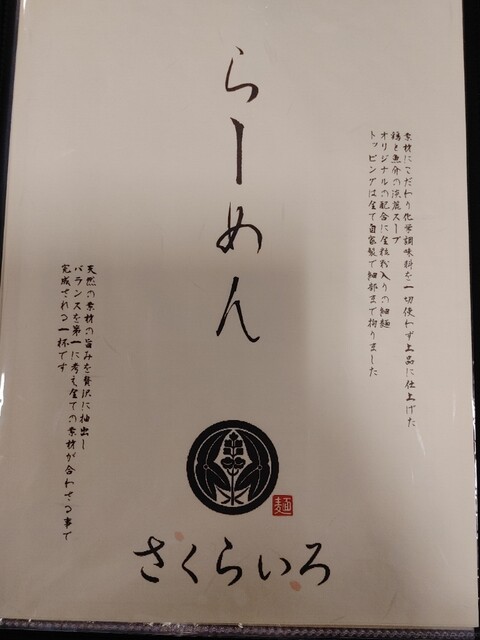 素材にこだわり化学調味料を一切使わず上品に仕上げた
鶏と魚介の淡麗スープ
オリジナルの配合に全粒粉入りの細麺
トッピングは全て自家製で細部まで拘りました
らーめん
天然の素材の旨みを贅沢に抽出し
バランスを第一に考え全ての素材が合わさる事で
完成される一杯です
麺
さくらいろ